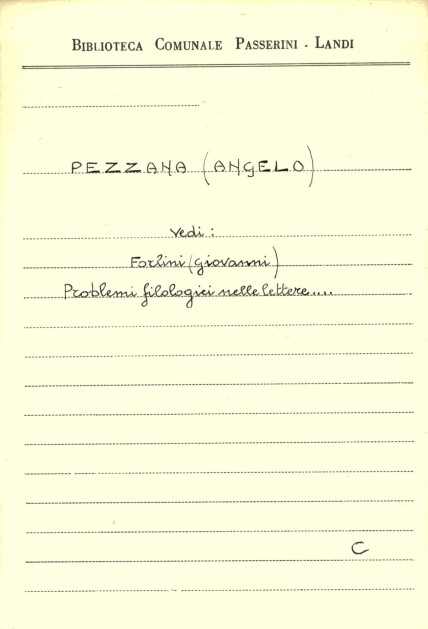 BIBLIOTECA COMUNALE PASSERINI - LANDI
PEZZANA (ANGELO)
Vedi:
Forlini (Giovanni)
Problemi filologici nelle lettere....
C